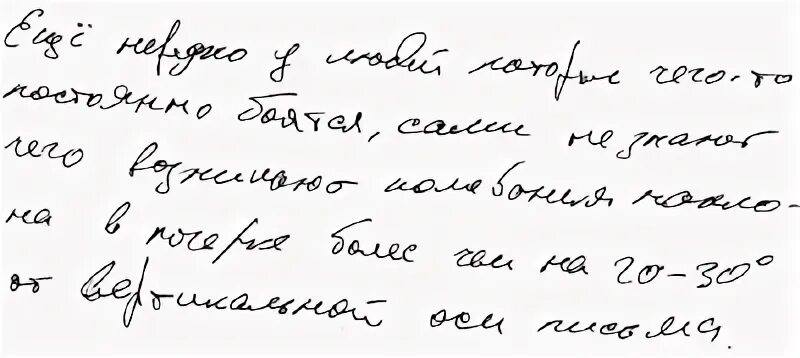 Ещё нередко у людей которые чего-то
постоянно боятся, сами не знают
чего возникают колебания накло-
на в почерке более чем на 20-30°
от вертикальной оси письма.